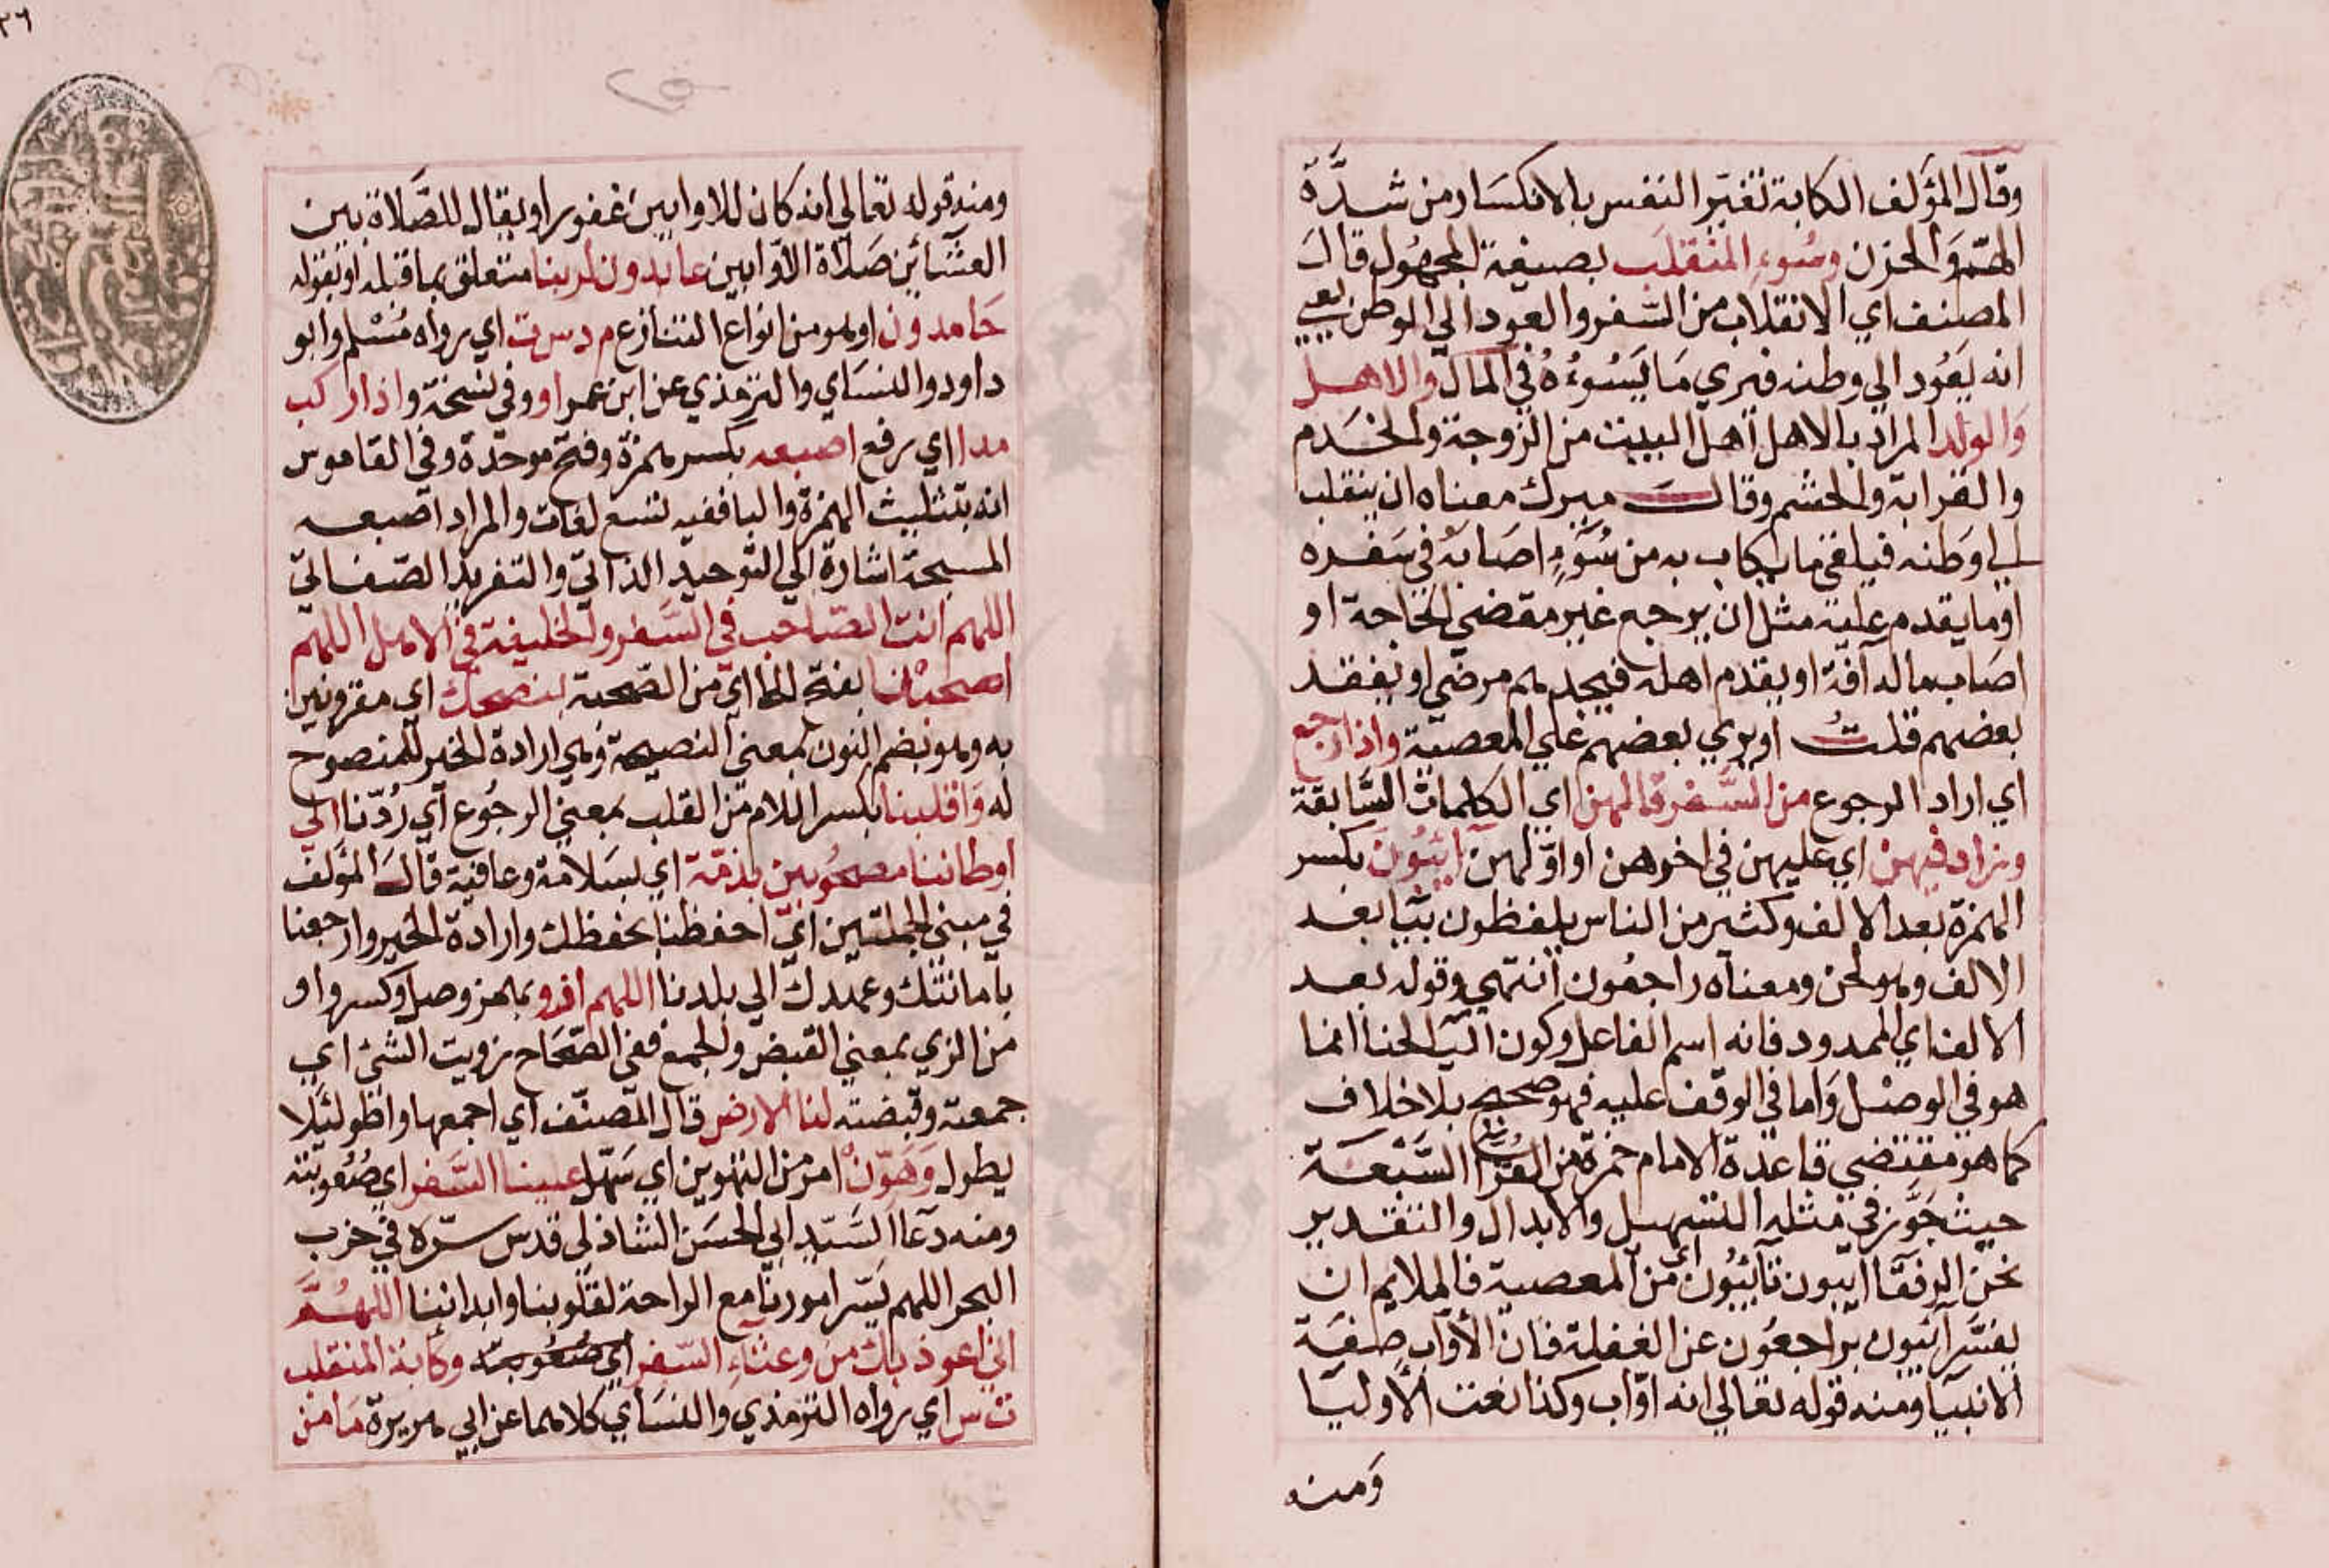 وقال المؤلف الكابة تغير النفس بالانكسار من شدة
الهم والحزن وسوء المنقلب بصيغة المجهول قال
المصنف اي الانقلاب من السفر والعود الي الوطن يعني
انه يعود الي وطنه فيري ما يسوءه في المال والاهل
والولد المراد بالاهل اهل البيت من الزوجة والخدم
والقرابة والحشم وقال ميرك معناه ان ينقلب
الي وطنه فيلقي ما يكاب به من سوء اصابه في سفره
او ما يقدم عليه مثل ان يرجع غير مقضي الحاجة او
اصاب ماله آفة او يقدم اهله فيجدهم مرضي او يفقد
بعضهم قلت او يري بعضهم علي المعصية واذا رجع
اي اراد الرجوع من السفر قالهن اي الكلمات السابقة
وزاد فيهن اي عليهن في اخرهن او اولهن آئبون بكسر
الهمزة بعد الالف وكثير من الناس يلفظون بيا بعد
الالف وهو لحن ومعناه راجعون انتهي وقوله بعد
الالف اي الممدود فانه اسم الفاعل وكون اليا لحنا انما
هو في الوصل واما في الوقف عليه فهو صحيح بلا خلاف
كما هو مقتضي قاعدة الامام حمزة من القرا السبعة
حيث جوز في مثله التسهيل والابدال والتقدير
نحن الرفقا ايبون تائبون اي من المعصية فالملايم ان
يفسر آئبون براجعون عن الغفلة فان الأواب صفة
الانبيا ومنه قوله تعالي انه اواب وكذا نعت الأوليا
ومنه
٣٦
ومنه قوله تعالي انه كان للاوابين غفورا ويقال للصلاة بين
العشائين صلاة الأوابين عابدون لربنا متعلق بما قبله او بقوله
حامدون او هو من انواع التنازع م د س ت اي رواه مسلم وابو
داود والنساي والترمذي عن ابن عمر او وفي نسخة واذا ركب
مد اي رفع اصبعه بكسر همزة وفتح موحدة وفي القاموس
انه بتثليث الهمزة والبا ففيه تسع لغات والمراد اصبعه
المسبحة اشارة الي التوحيد الذاتي والتفريد الصفاتي
اللهم انت الصاحب في السفر والخليفة في الاهل اللهم
اصحبنا بفتح الحا اي من الصحبة بنصحك اي مقرونين
به وهو بضم النون بمعني النصيحة وهي ارادة الخير للمنصوح
له واقلبنا بكسر اللام من القلب بمعني الرجوع اي ردنا الي
اوطاننا مصحوبين بذمة اي بسلامة وعافية قال المؤلف
في مبني الجملتين اي احفظنا بحفظك وارادة الخير وارجعنا
بامانتك وعهدك الي بلدنا اللهم ازو بهمز وصل وكسر واو
من الزي بمعني القبض والجمع ففي الصحاح زويت الشئ اي
جمعته وقبضته لنا الارض قال المصنف اي اجمعها واطو لئلا
يطول وهون امر من التهوين اي سهل علينا السفر اي صعوبته
ومنه دعا السيد ابي الحسن الشاذلي قدس سره في حزب
البحر اللهم يسر امورنا مع الراحة لقلوبنا وابداننا اللهم
اني اعوذ بك من وعثاء السفر اي صعوبته وكآبة المنقلب
ت س اي رواه الترمذي والنساي كلاهما عن ابي هريرة ما من